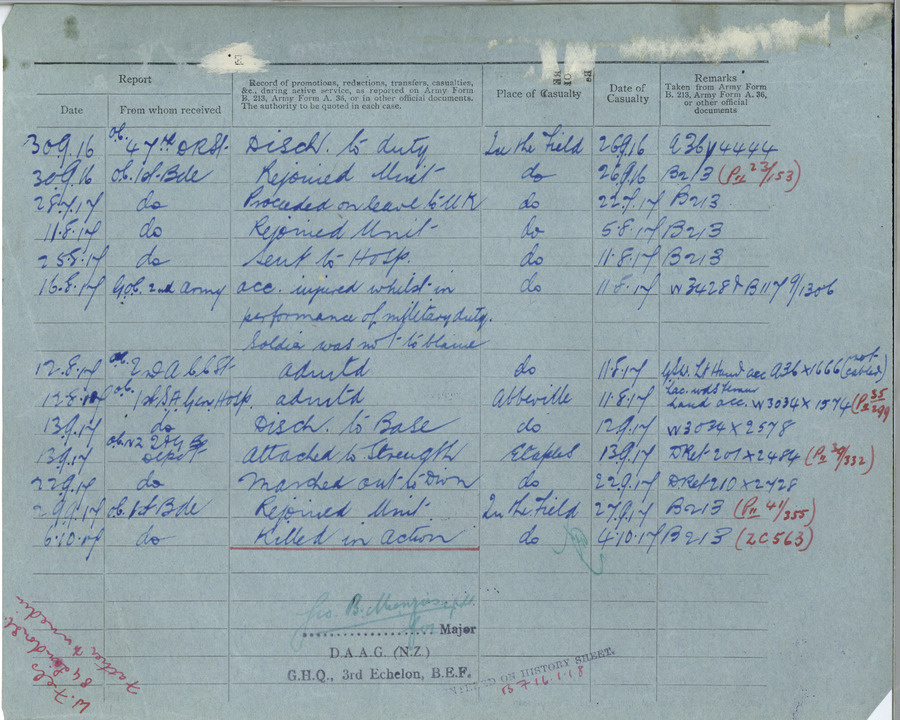 Report
Record of promotions, reductions, transfers, casualties, &c., during active service, as reported on Army Form B. 213, Army Form A. 36, or in other official documents. The authority to be quoted in each case.
Place of Casualty
Date of Casualty
Remarks
Taken from Army Form B. 213, Army Form A. 36, or other official documents
Date From whom received
30.9.16 ob. 47th DRSt. Disch. to duty In the Field 26.9.16 A36 4444
30.9.16 ob. 1st. Bde Rejoined Unit do 26.9.16 B213 (Pu 23/153)
28.7.17 do Proceeded on leave to UK do 22.7.17 B213
11.8.17 do Rejoined Unit do 5.8.17 B213
25.8.17 do Sent to Hosp. do 11.8.17 B213
16.8.17 Gob. 2nd Army acc. injured whilst in do 11.8.17 W3428 B117 9/1306
performance of military duty.
Soldier was not to blame
12.8.17 admtd do 11.8.17 GSW. Lt Hand acc A36 X 1666 (not cabled)
12.8.17 ob. 1st. S.A. Gen. Hosp. admtd Abbeville 11.8.17 Lac. wds hand acc. W3034 X 1574 (Pu 35/299
13.9.17 do Disch. to Base do 12.9.17 W3034 X 2578
13.9.17 ob. NZ Depot attached to Strength Etaples 13.9.17 DRet 201 X 2484 (Pu 39/332)
22.9.17 do Marched out to Divn do 22.9.17 DRet 210 X 2728
29.9.17 ob. 1st Bde Rejoined Unit In the Field 27.9.17 B213 (Pu 41/355)
6.10.17 do Killed in action do 4.10.17 B213 (ZC563)
Geo. B. Menzies
Major
D.A.A.G. (N.Z.)
G.H.Q., 3rd Echelon, B.E.F.
ON HISTORY SHEET.
16.1.18
84